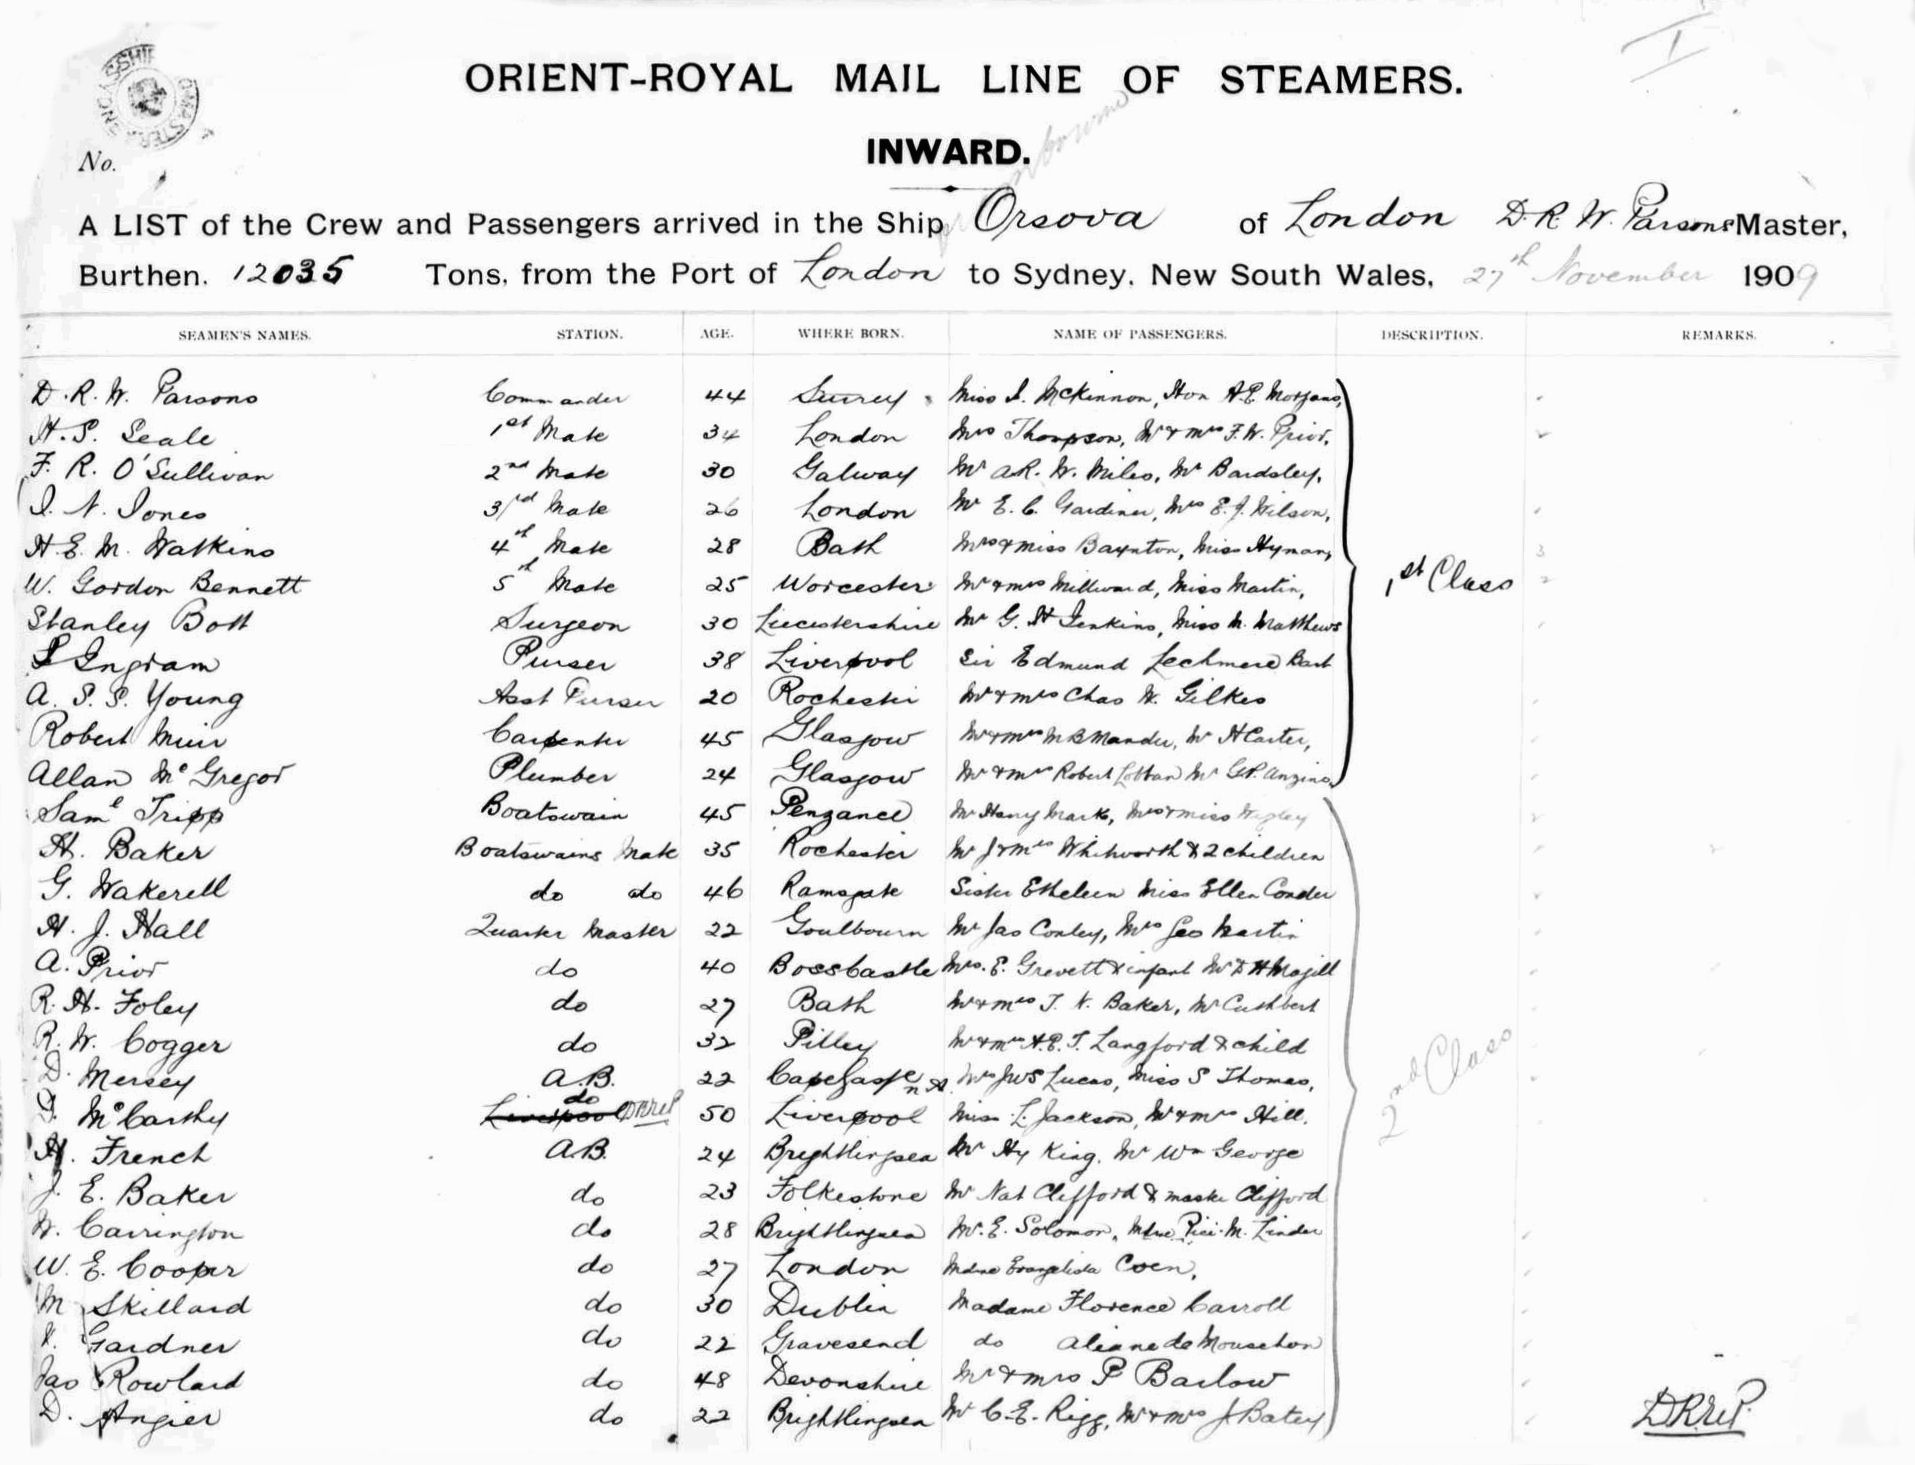 ORIENT-ROYAL MAIL LINE OF STEAMERS.
INWARD.
No.
A LIST of the Crew and Passengers arrived in the Ship Orsova of London D.R.W. Parsons Master,
Burthen. 12035 Tons, from the Port of London to Sydney, New South Wales, 27th November 1909
SEAMEN'S NAMES. STATION. AGE. WHERE BORN. NAME OF PASSENGERS. DESCRIPTION. REMARKS.
D.R.W. Parsons Commander 44 Surrey Miss McKinnon, Hon A.E. Morgans,
H.S. Seale 1st Mate 34 London Mrs Thompson, Mr & Mrs F.W. Prior,
F.R. O'Sullivan 2nd Mate 30 Galway Mr A.R.W. Miles, Mr Bardsley,
I.N. Jones 3rd Mate 26 London Mr E.C. Gardiner, Mrs E.J. Wilson,
H.E.M. Watkins 4th Mate 28 Bath Mrs & Miss Baynton, Miss Hyman,
W. Gordon Bennett 5th Mate 25 Worcester Mr & Mrs Millward, Miss Martin,
1st Class
Stanley Bott Surgeon 30 Liecestershire Mr G. H Jenkins, Miss M. Matthews
Ingram Purser 38 Liverpool Sir Edmund Lechmere Bart
A.S.S. Young Asst Purser 20 Rochester Mr & Mrs Chas W. Gilkes
Robert Muir Carpenter 45 Glasgow Mr & Mrs M B Mander, Mr H Carter,
Allan McGregor Plumber 24 Glasgow Mr & Mrs Robert Lobban Mr G.P.
Saml Tripp Boatswain 45 Penzance Mr Harry Mark, Mrs & Miss Wigley
H. Baker Boatswains Mate 35 Rochester Mr J & Mrs Whitworth & 2 children
G. Wakerell do do 46 Ramsgate Sister Etheleen Miss Ellen Conder
H.J. Hall Quarter Master 22 Goulbourn Mr Jas Conley, Mrs Geo Martin
A. Prior do 40 Boscastle Mrs. E. Grevett & infant Mr D H Magill
R.H. Foley do 27 Bath Mr & Mrs T.N. Baker, Mr Cuthbert
R.W. Cogger do 32 Pilley Mr & Mrs A.E.T. Langford & child
D. Mersey A.B. 22 Mrs JWS Lucas, Miss S Thomas,
2nd Class
D. McCarthy Liverpool do D.R.W.P. 50 Liverpool Miss L. Jackson, Mr & Mrs Hill.
H. French A.B. 24 Brightlingsea Mr Hy King, Mr Wm George
J.E. Baker do 23 Folkestone Mr Nat Clifford & master Clifford
W. Carrington do 28 Brightlingsea Mr. E. Solomon, Mdme Ricci M. Linder
W.E. Cooper do 27 London Mdme Evangelista Coen,
M Skillard do 30 Dublin Madame Florence Carroll
Gardner do 22 Gravesend do Aliane de Mousehon
Jas Rowland do 48 Devonshire Mr & Mrs P Barlow
D. Angier do 22 Brightlingsea Mr C.E. Rigg, Mr & Mrs J Batey
D.R.W.P.